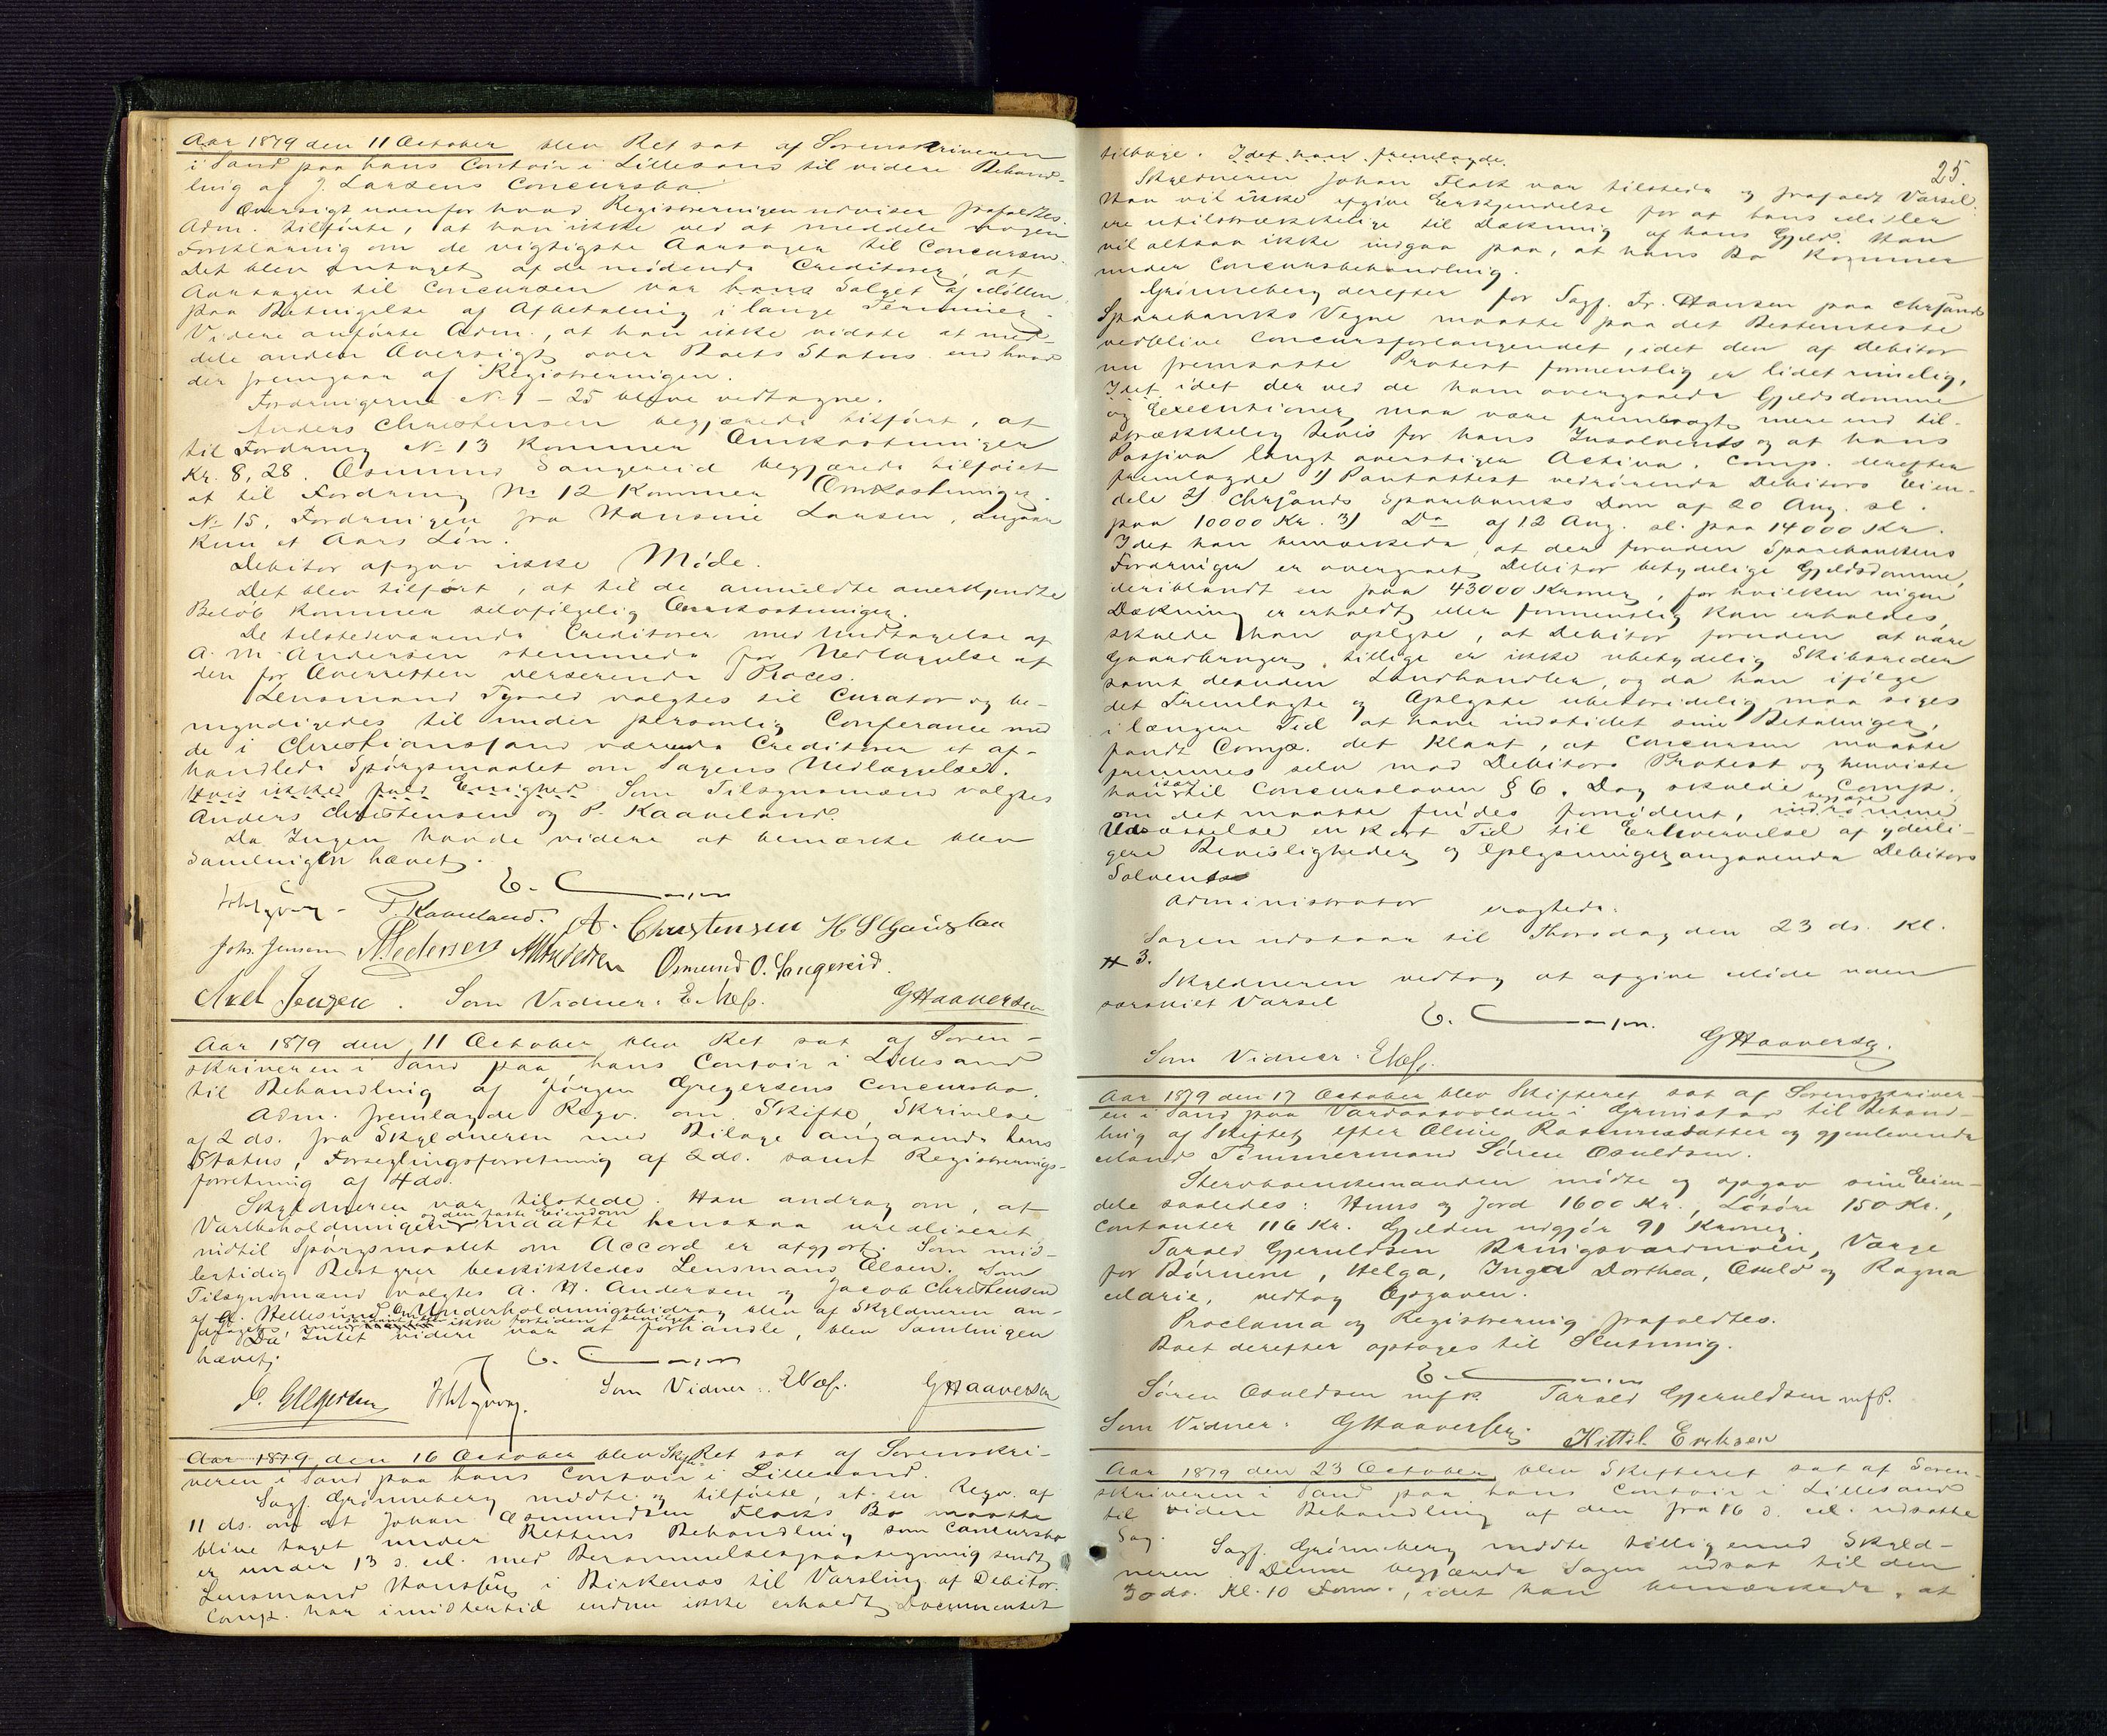 Aar 1879 den 11 October blev Ret sat af Sorenskriveren
i Sand paa hans Contoir i Lillesand til videre Behand-
ling af J. Larsens Concursbo.
Oversigt udenfor hvad Registreringen udviser frafaldtes.
Adm. tilførte, at han ikke ved at meddele nogen
Forklaring om de vigtigste Aarsager til Concursen.
Det blev antaget af de mødende Creditorer, at
Aarsagen til Concursen var hans Salget af Møllen
paa Betingelse af Afbetaling i lange Terminer.
Videre anførte Adm., at han ikke vidste at med-
dele anden Oversigt over Boets Status end hvad
der fremgaar af Registreringen.
Fordringerne No 1 - 25 bleve vedtagne.
Anders Christensen begjærede tilført, at
til Fordring No 13 kommer Omkostninger
Kr. 8,28. Osmund Sangereid begjærede tilføiet
at til Fordring No 12 kommer Omkostninger.
No 15, Fordringen fra Hansine Larsen, angaar
kun et Aars Løn.
Debitor afgav ikke Møde.
Det blev tilført, at til de anmeldte anerkjendte
Beløb kommer selvfølgelig Omkostninger
De tilstedeværende Creditorer med Undtagelse af
A. M. Andersen stemmede for Nedlæggelse af
den for Overretten verserende Proces.
Lensmand Tyvold valgtes til Curator og be-
myndigedes til under personlig Conferance med
de i Christianssand værende Creditorer et af-
handlede Spørgsmaalet om Sagens Nedlæggelse.
Hvis ikke fuld Enighed Som Tilsynsmænd valgtes
Anders Christensen og P. Kaaveland.
Da Ingen havde videre at bemærke blev
Samlingen hævet.
P. Kaaveland. A. Christensen
Johs. Jensen Osmund O. Sangereid.
Axel Jensen. Som Vidner: E. Næss. G Haaversen
Aar 1879 den 11 October blev Ret sat af Soren-
skriveren i Sand paa hans Contoir i Lillesand
til Behandling af Jørgen Gregersens Concursbo.
Adm. fremlagde Reqv. om Skifte, Skrivelse
af 2 ds. fra Skyldneren med Bilage angaaende hans
Status, Forseglingsforretning af 2 ds. samt Registrerings-
forretning af 4 ds.
Skyldneren var tilstede. Han androg om, at
Varebeholdningen og den faste Eiendom maatte henstaa urealiseret
indtil Spørgsmaalet om Accord er afgjort. Som mid-
lertidig Bestyrer beskikkedes Lensmand Olsen. Som
Tilsynsmænd valgtes A. H. Andersen og Jacob Christensen
af Hellesund. Om Underholdningsbidrag blev af Skyldneren an-
draget, men ikke fortiden bevilget.
Da Intet videre var at forhandle, blev Samlingen
hævet.
Som Vidner: E Næss. G Haaversen
Aar 1879 den 16 October blev Skfs Ret sat af Sorenskri-
veren i Sand paa hans Contoir i Lillesand.
Sagf. Grønneberg mødte og tilførte, at en Reqv. af
11 ds. om at Johan Osmundsen Flaks Bo maatte
blive taget under Rettens Behandling som Concursbo
er under 13 d. M. med Berammelsespaategning sendt
Lensmand i Birkenes til Varsling af Debitor.
Comp. har imidlertid endnu ikke erholdt Documentet
25.
tilbage. Idet han fremlagde
Skyldneren Johan Flak var tilstede og frafaldt Varsel.
Han vil ikke afgive Erkjendelse for at hans Midler
ere utilstrækkelige til Dækning af hans Gjeld. Han
vil altsaa ikke indgaa paa, at hans Bo kommer
under Concursbehandling.
Grønneberg derefter for Sagf. Fr. Hansen paa Chrsands
Sparebanks Vegne maatte paa det Bestemteste
vedblive Concursforlangendet, idet den af Debitor
nu fremsatte Protest formentlig er lidet rimelig,
Idet idet der ved de ham overgaaede Gjeldsdomme
og Executioner maa være frembragt mere end til-
strækkelig Bevis for hans Insolvents og at hans
Passiva langt overstiger Activa. Comp. derefter
fremlagde 1) Pantattest vedrørende Debitors Eien-
dele 2) Chrsands Sparebanks Dom af 20 Aug. sl.
paa 10000 Kr. 3) Do af 12 Aug. sl. paa 14000 Kr.
Idet han bemærkede, at der foruden Sparebankens
Fordringer er overgaaet Debitor betydelige Gjeldsdomme,
deriblandt en paa 43000 Kroner, for hvilken ingen
Dækning er erholdt eller formentlig kan erholdes,
skulde han oplyse, at Debitor foruden at være
Gaardbruger, tillige er ikke ubetydelig Skibsreder
samt desuden Landhandler, og da han ifølge
det Fremlagte og Oplyste ubestridelig maa siges
i længere Tid at have indstillet sine Betalinger,
fandt Comp. det klart, at Concursen maatte
fremmes selv mod Debitors Protest og henviste
han især til Concursloven § 6. Dog skulde Comp.
om det maatte findes fornødent, begjære indrømme
Udsættelse en kort Tid til Erhvervelse af yderli-
gere Bevisligheder og Oplysninger angaaende Debitors
Solvents
Administrator eragtede:
Sagen udstaar til Thorsdag den 23 ds. Kl.
3.
Skyldneren vedtog at afgive Møde uden
særskilt Varsel
G Haaversen.
Som Vidner: E Næss.
Aar 1879 den 17 October blev Skifteret sat af Sorenskriver-
en i Sand paa i Grimstad til Behand-
ling af Skiftet efter Oline Rasmusdatter og gjenlevende
Mand Tømmermand Søren Osuldsen.
Stervboenkemanden mødte og opgav sine Eien-
dele saaledes: Huus og Jord 1600 Kr., Løsøre 150 Kr.,
Contanter 116 Kr. Gjelden udgjør 91 Kroner.
Tarald Gjeruldsen Bringsværdmoen, Værge
for Børnene, Helga, Inga Dorthea, Osuld og Ragna
Marie, vedtog Opgaven.
Proclama og Registrering frafaldtes.
Boet derefter optages til Slutning.
Søren Osuldsen m.f.P. Tarald Gjeruldsen mfP.
Som Vidner: G Haaversen. Kittil Eriksen
Aar 1879 den 23 October blev Skifteret sat af Soren-
skriveren i Sand paa hans Contoir i Lillesand
til videre Behandling af den fra 16 d. M. udsatte
Sag.
Sagf. Grønneberg mødte tilligemed Skyld-
neren. Denne begjærede Sagen udsat til den
30 ds. Kl. 10 Form., idet han bemærkede, at